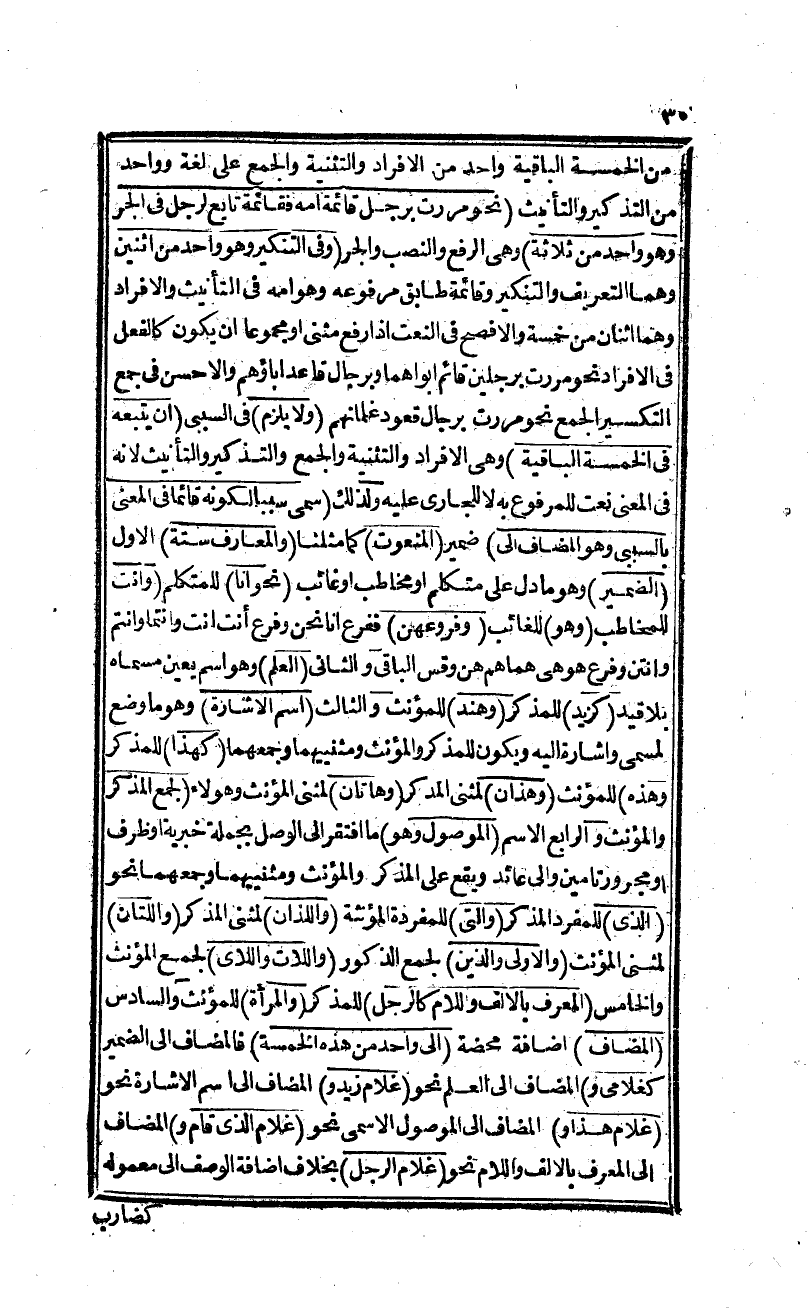 ٣٠
من الخمسة الباقية واحد من الافراد والتثنية والجمع على لغة وواحد
من التذكير والتأنيث (نحو مررت برجل قائمة امه فقائمة تابع لرجل فى الجر
وهو واحد من ثلاثة) وهى الرفع والنصب والجر (وفى التنكير وهو واحد من اثنين
وهما التعريف والتنكير وقائمة طابق مرفوعه وهو امه فى التأنيث والافراد
وهما اثنان من خمسة والافصح فى النعت اذا رفع مثنى او مجموعا ان يكون كالفعل
فى الافراد نحو مررت برجلين قائم ابواهما وبرجال قاعد اباؤهم والاحسن فى جمع
التكسير الجمع نحو مررت برجال قعود غلمانهم (ولا يلزم) فى السببى (ان يتبعه
فى الخمسة الباقية) وهى الافراد والتثنية والجمع والتذكير والتأنيث لانه
فى المعنى نعت للمرفوع به لا للجارى عليه ولذلك (سمى سببيا لكونه قائما فى المعنى
بالسببى وهو المضاف الى) ضمير (المنعوت) كما مثلنا (والمعارف ستة) الاول
(الضمير) وهو ما دل على متكلم او مخاطب او غائب (نحو انا) للمتكلم (وانت
للمخاطب (وهو) للغائب (وفروعهن) ففرع انا نحن وفرع أنت انت وانتما وانتم
وانتن وفرع هو هى هما هم هن وقس الباقى و الثانى (العلم) وهو اسم يعين مسماه
بلا قيد (كزيد) للمذكر (وهند) للمؤنث و الثالث (اسم الاشارة) وهو ما وضع
لمسمى واشارة اليه ويكون للمذكر والمؤنث ومثنيهما وجمعهما (كهذا) للمذكر
وهذه) للمؤنث (وهذان) لمثنى المذكر (وهاتان) لمثنى المؤنث وهولاء (لجمع المذكر
والمؤنث و الرابع الاسم (الموصول وهو) ما افتقر الى الوصل بجملة خبرية او ظرف
او مجرور تامين والى عائد ويقع على المذكر والمؤنث ومثنيهما وجمعهما نحو
(الذى) للمفرد المذكر (والتى) للمفردة المؤنثة (واللذان) لمثنى المذكر (واللتان)
لمثنى المؤنث (والاولى والذين) لجمع الذكور (واللات واللاى) لجمع المؤنث
والخامس (المعرف بالالف واللام كالرجل) للمذكر (والمرأة) للمؤنث والسادس
(المضاف) اضافة محضة (الى واحد من هذه الخمسة) فالمضاف الى الضمير
كغلامى و) المضاف الى العلم نحو (غلام زيد و) المضاف الى اسم الاشارة نحو
(غلام هذا و) المضاف الى الموصول الاسمى نحو (غلام الذى قام و) المضاف
الى المعرف بالالف واللام نحو (غلام الرجل) بخلاف اضافة الوصف الى معموله
كضارب